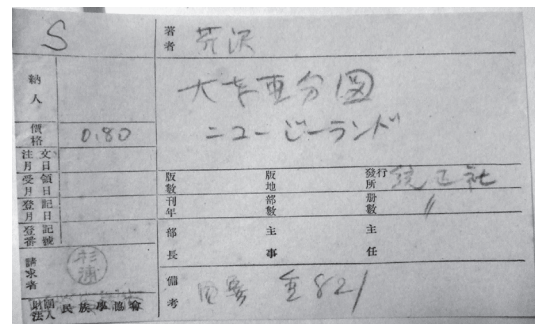 S
著者 芹沢
納人
大東亜分図
ニュージーランド
價格 0.80
注文月日
受領月日
登記月日
登記番號
版數 版地 發行所 統正社
刊年 部數 册數 〃
部長 主事 主任
請求者 杉浦
備考 821
財團法人 民族學協會